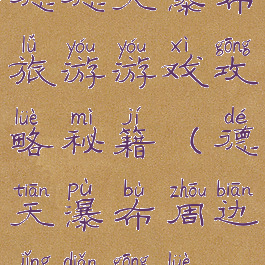 lǚ yóu yóu xì gōng
旅游游戏攻
lüè mì jí dé
略秘籍（德
tiān pù bù zhōu biān
天瀑布周边
jǐng diǎn gōng lüè